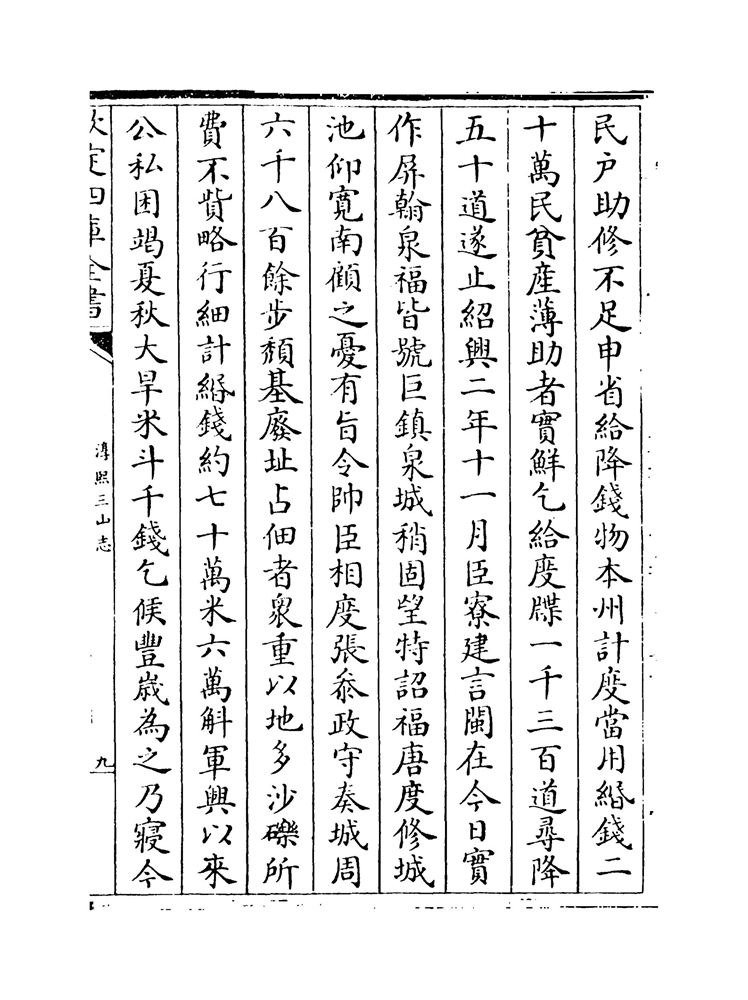 民戸助修不足申省給降錢物本州計度當用緡錢二
十萬民貧産薄助者實鮮乞給度牒一千三百道尋降
五十道遂止紹興二年十一月臣寮建言閩在今日實
作屏翰泉福皆號巨鎮泉城稍固望特詔福唐度修城
池仰寛南顧之憂有旨令帥臣相度張叅政守奏城周
六千八百餘步頽基廢址占佃者衆重以地多沙礫所
費不貲略行細計緡錢約七十萬米六萬斛軍興以來
公私困竭夏秋大旱米斗千錢乞候豐歳為之乃寢今
欽定四庫全書
淳熙三山志
九